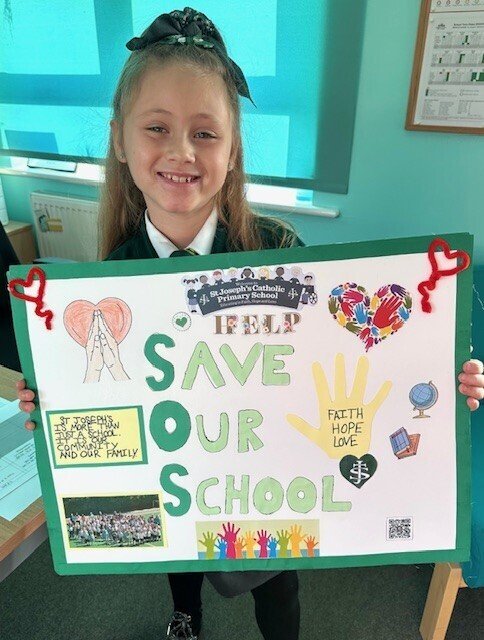 Welcome to
St Joseph's Catholic
Primary School
HELP
SAVE
OUR
SCHOOL
ST JOSEPH'S
IS MORE THAN
JUST A SCHOOL.
IT IS OUR
COMMUNITY
AND OUR FAMILY
FAITH
HOPE
LOVE